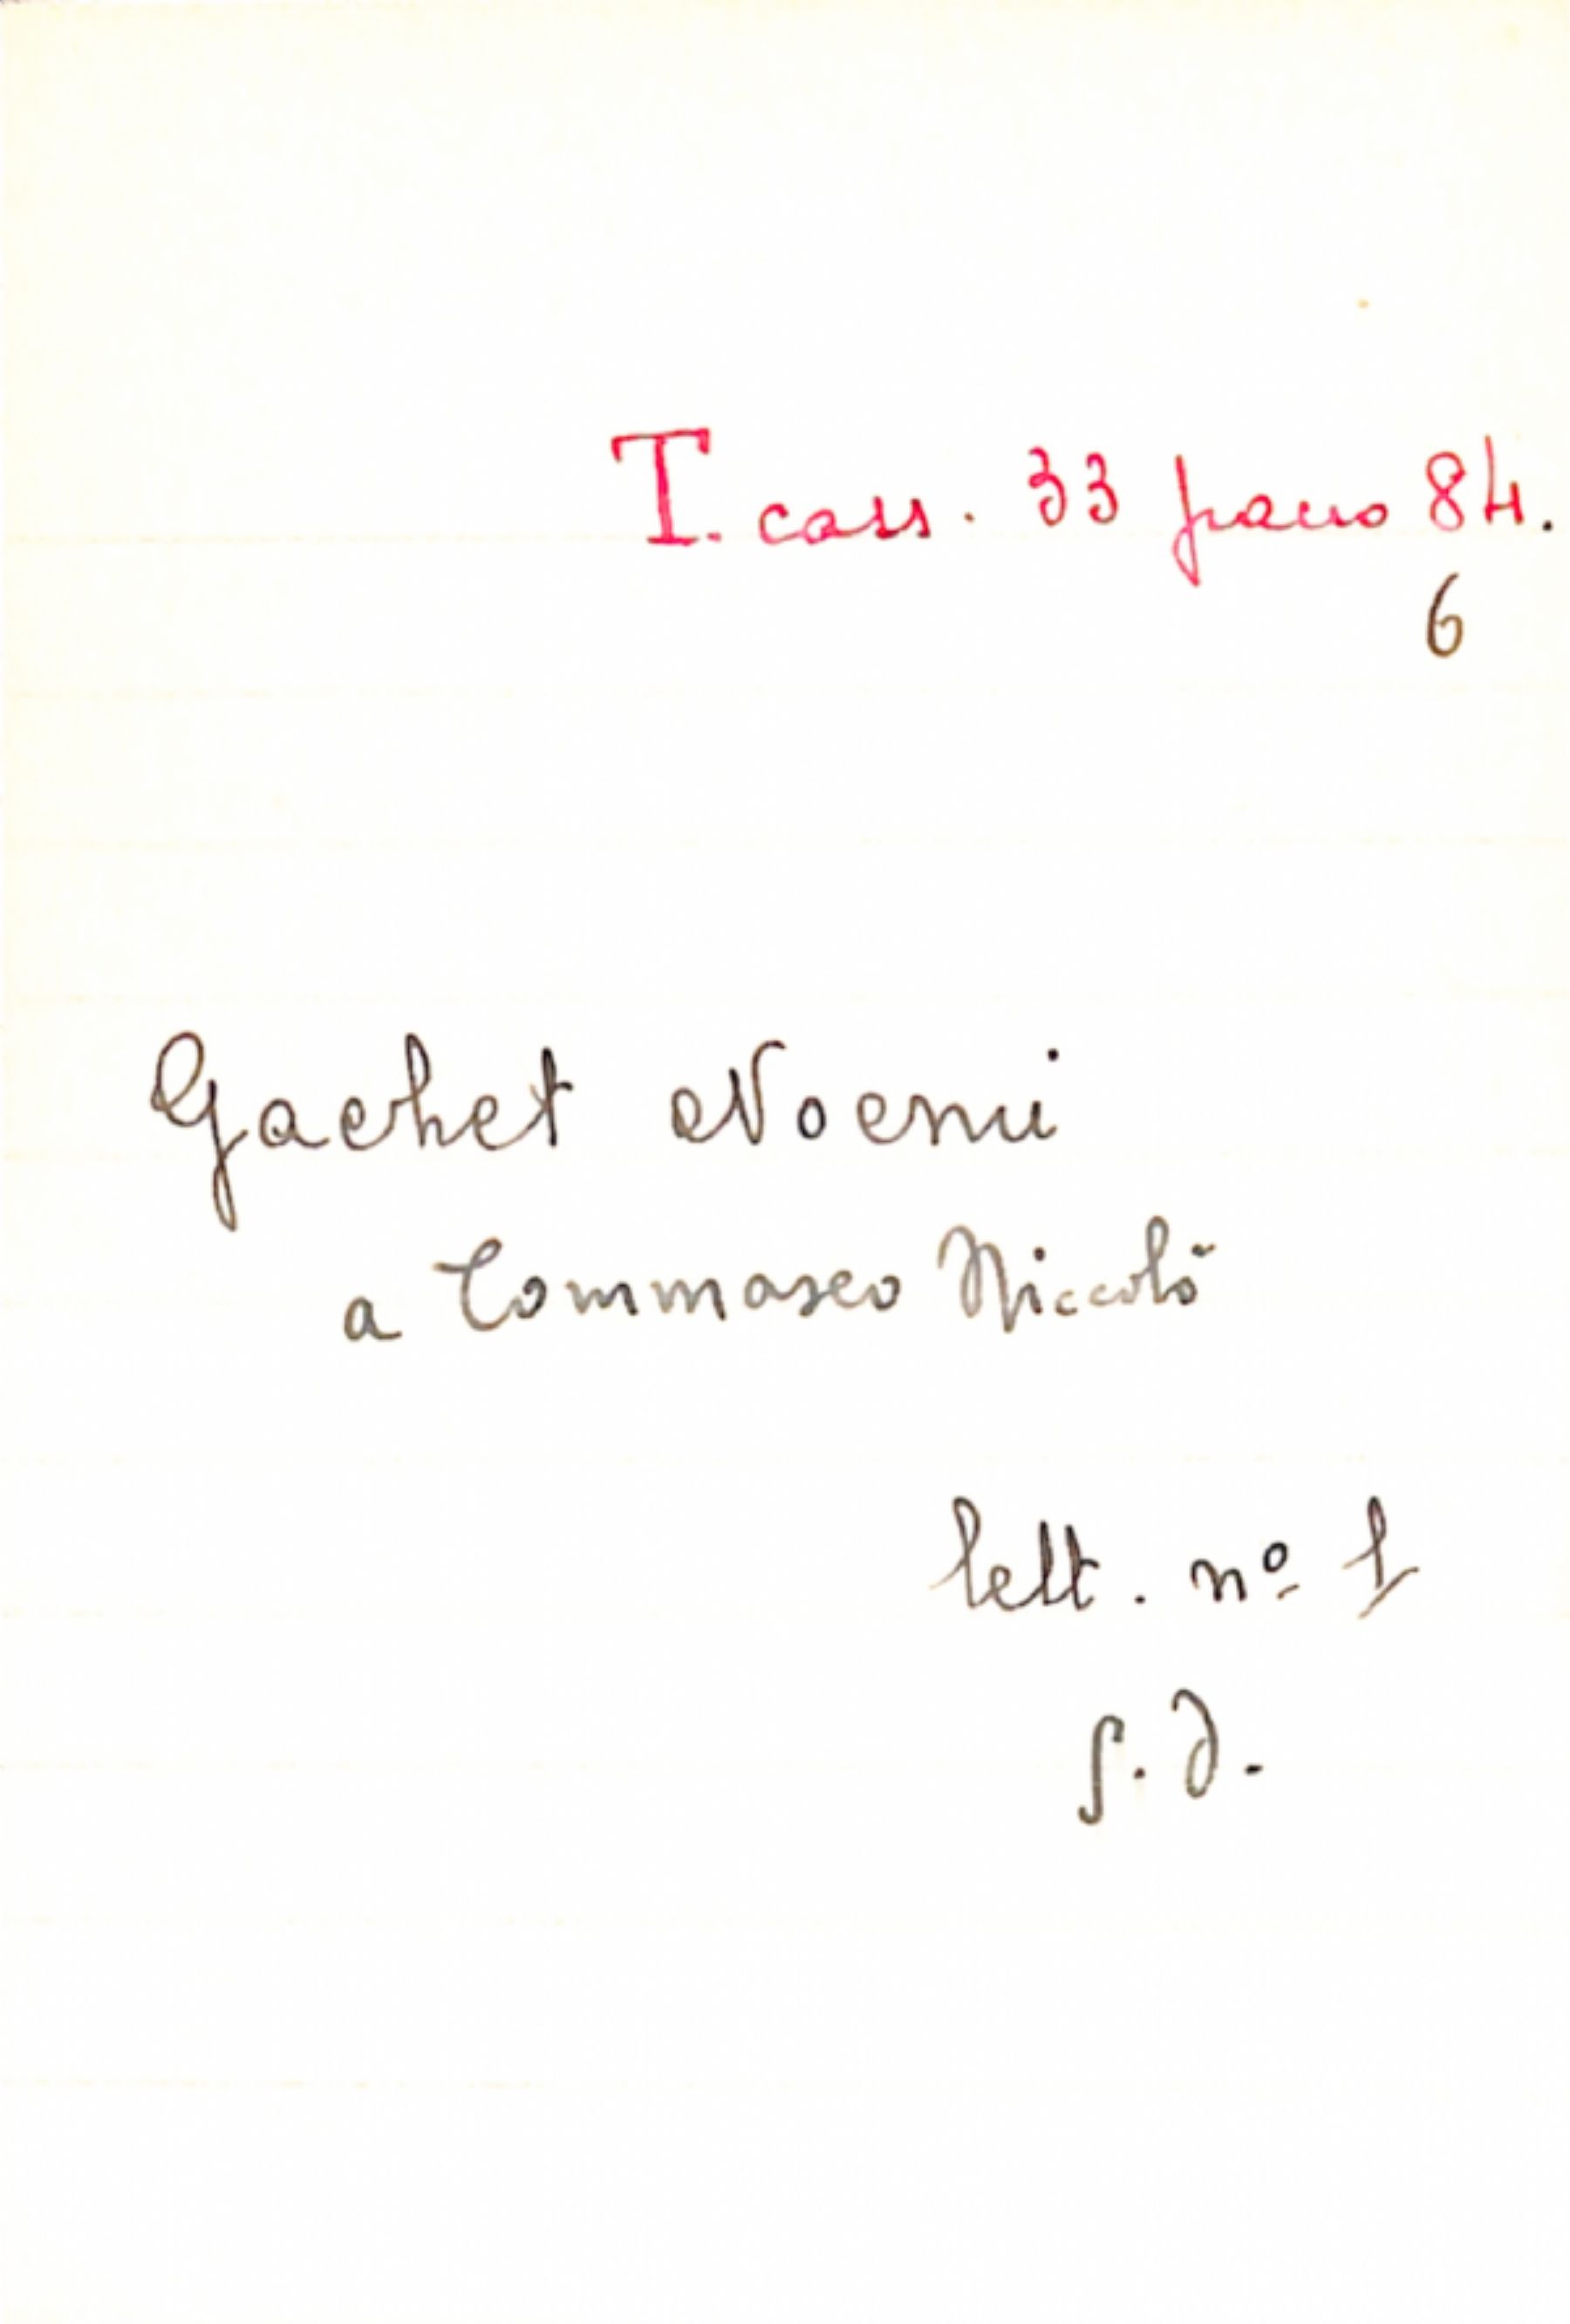 T. cass. 33 pacco 84.
6
Gachet Noemi
a Tommaseo Niccolò
lett. nº 1
s. d.